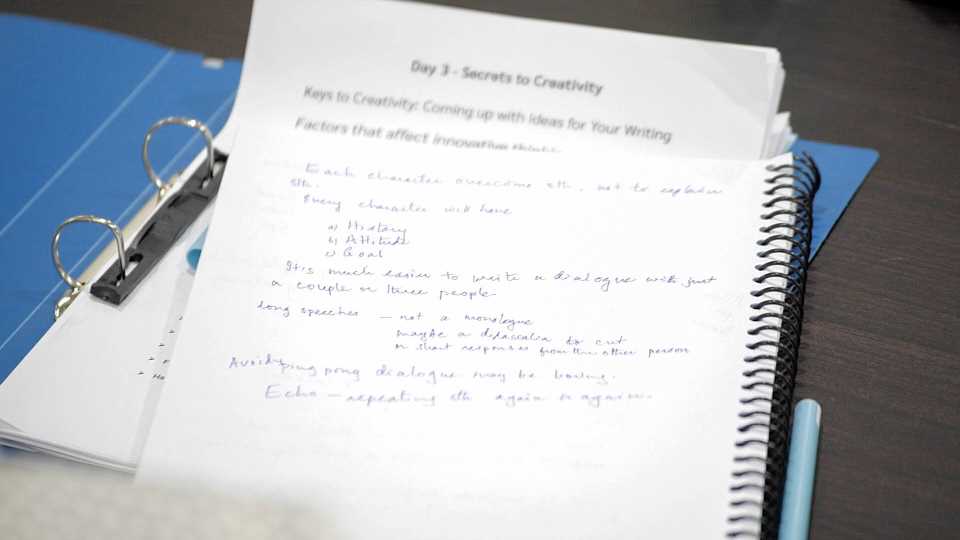 Day 3 - Secrets to Creativity
Keys to Creativity: Coming up with Ideas for Your Writing
Factors that affect innovative
Each character overcome sth, not to explain
sth.
Every character will have
a) History
b) Attitude
c) Goal
It's much easier to write a dialogue with just
a couple or three people
long speeches — not a monologue
maybe a didascalia to cut
or short responses from the other person
Avoid ping pong dialogue may be boring.
Echo — repeating sth again & again.